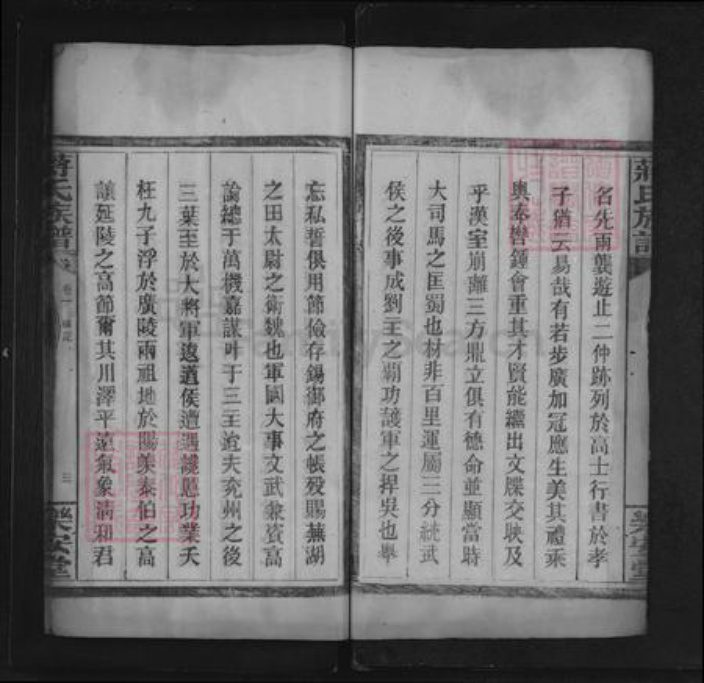 蔣氏族譜
樂安堂
名先兩龔遊止二仲跡列於高士行書於孝
子猶云易哉有若步廣加冠應生美其禮乘
輿奉轡鍾會重其才賢能繼出文牒交映及
乎漢室崩離三方鼎立俱有德命並顯當時
大司馬之匡蜀也材非百里運屬三分統武
侯之後事成劉王之霸功護軍之捍吳也舉
忘私誓俱用節儉存錫御府之帳歿賜蕪湖
之田太尉之衛魏也軍國大事文武兼資高
論總于萬機嘉謀叶于三王逮夫兗州之後
三葉至於大將軍逡遒侯遭遇讒慝功業夭
枉九子浮於廣陵兩祖地於陽羨泰伯之高
讓延陵之高節爾其川澤平遠氣象淸和君
蔣氏族譜
卷一
三
樂安堂